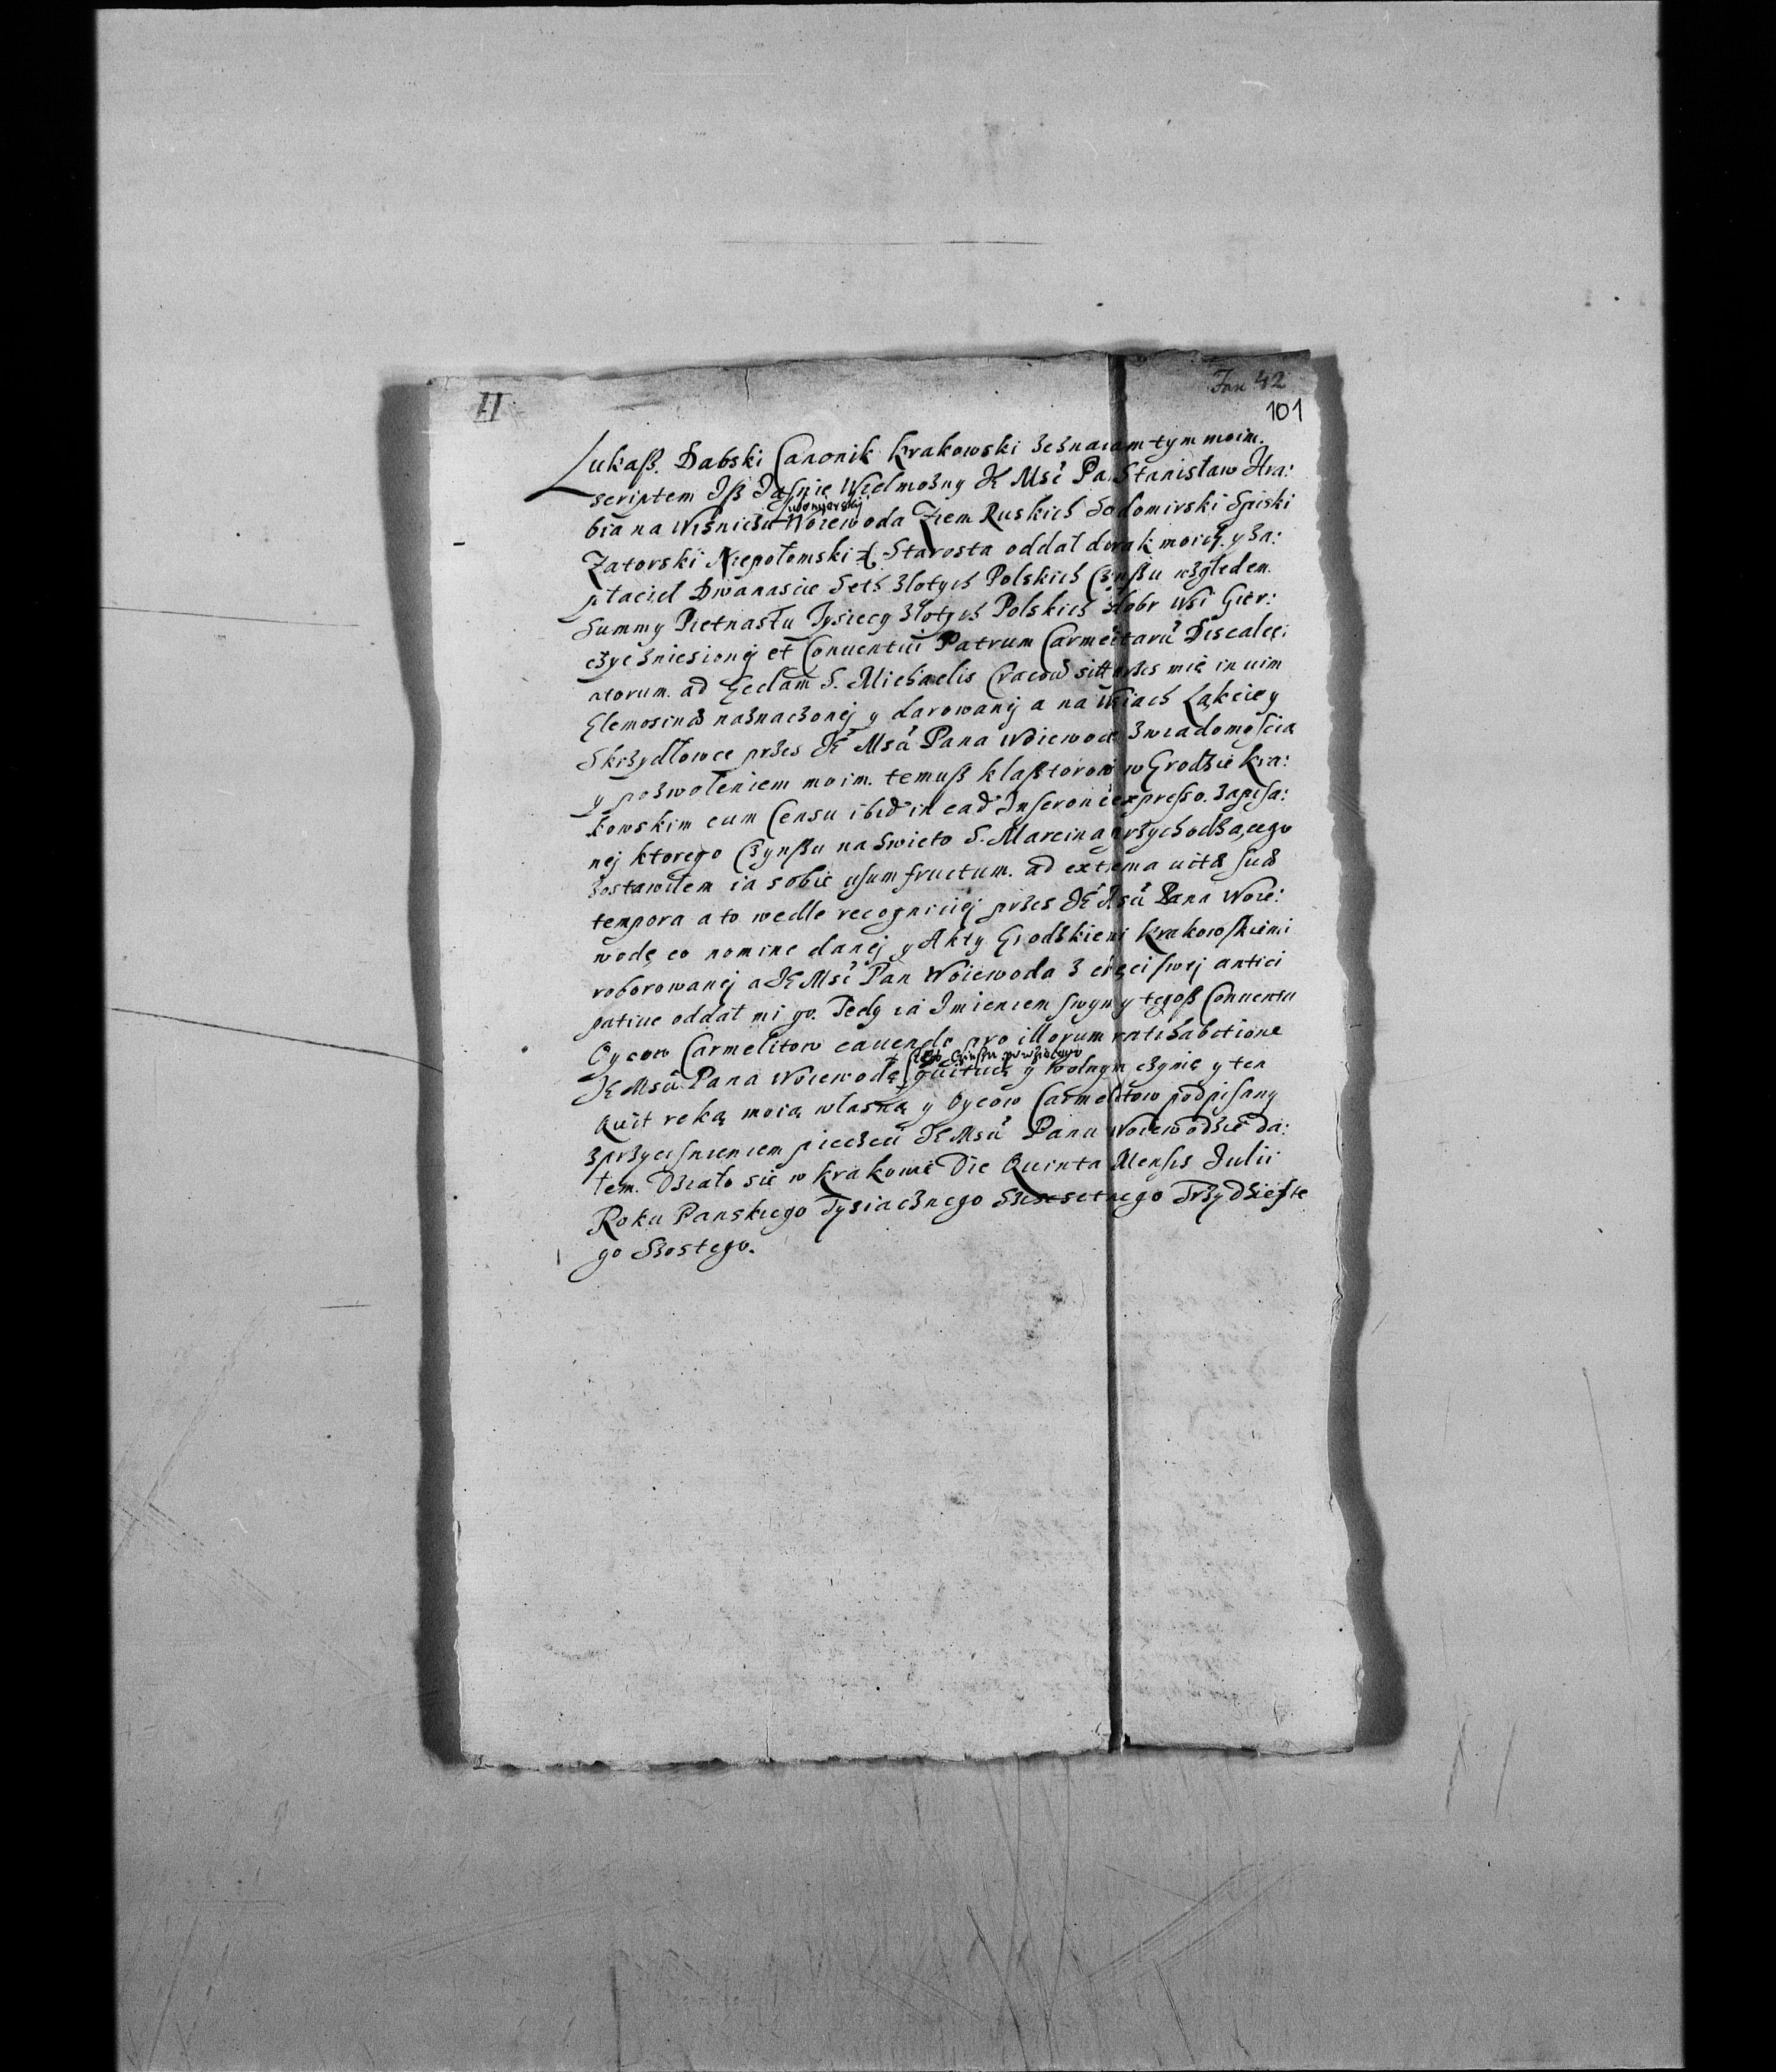 II
Fasc 42
101
Lukasz Dabski Canonik Krakowski zeznaiam tym moim
scriptem Isz Jaſnie Wielmożny JE Mść Pan Stanisław Hra:
bia na Wiśniczu Woiewoda Ziem Ruskich Sedomirski Spiski
Zatorski Niepołomski Starosta oddał do rąk moich y za:
płacieł Dwanascie Seth złotych Polskich Czynszu względem
Summy Pietnastu Tysiecy złotych Polskich z dobr Wsi Gier:
czyć zniesionej et Conuentui Patrum Carmelitarū Discalce:
atorum ad Eeclam S. Michaelis przes mię in uim
naznaczonej y darowanej a na Wsiach Łąkcie y
Skrzydlowce przes JE Mśā Pana Woiewodę z wiadomością
y pozwoleniem moim temusz klasztorowi w Grodzie Kra:
kowskim cum Censu ibid in ead expreſso zapiſa:
nej ktorego Czynszu na swieto S. Marcina przychodzącego
zostawiłem ia sobie uſum fructum ad extrema uitæ ſuæ
tempora a to wedle recogniciej przes JE Mśā Pana Woie:
wodę eo nomine danej y Akty Grodzkiemi Krakowſkiemi
roborowanej a JE Mść Pan Woiewoda z chęci ſwej antici
patiue oddał mi go. Tedy ia Imieniem ſwym y tegosz Conuentu
Oycow Carmelitow cauendo pro illorum ratihabitione
JE Mśā Pana Woiewodę quituię y wolnym czynię y ten
Quit reką moią własną y Oycow Carmelitow podpiſany
z przyciſnieniem pieczeci JE Mśā Panu Woiewodzie da:
łem. Działo się w Krakowie Die Quinta Menſis Julii
Roku Panskiego Tysiacznego Szescsetnego Trzydzieſte
go Szostego.